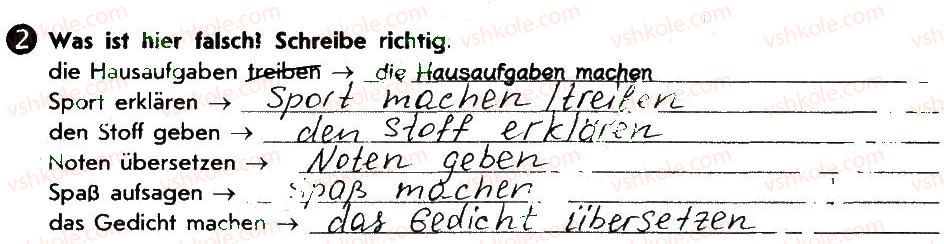 2 Was ist hier falsch? Schreibe richtig.
die Hausaufgaben treiben → die Hausaufgaben machen
Sport erklären → Sport machen /treiben
den Stoff geben → den Stoff erklären
Noten übersetzen → Noten geben
Spaß aufsagen → Spaß machen
das Gedicht machen → das Gedicht übersetzen